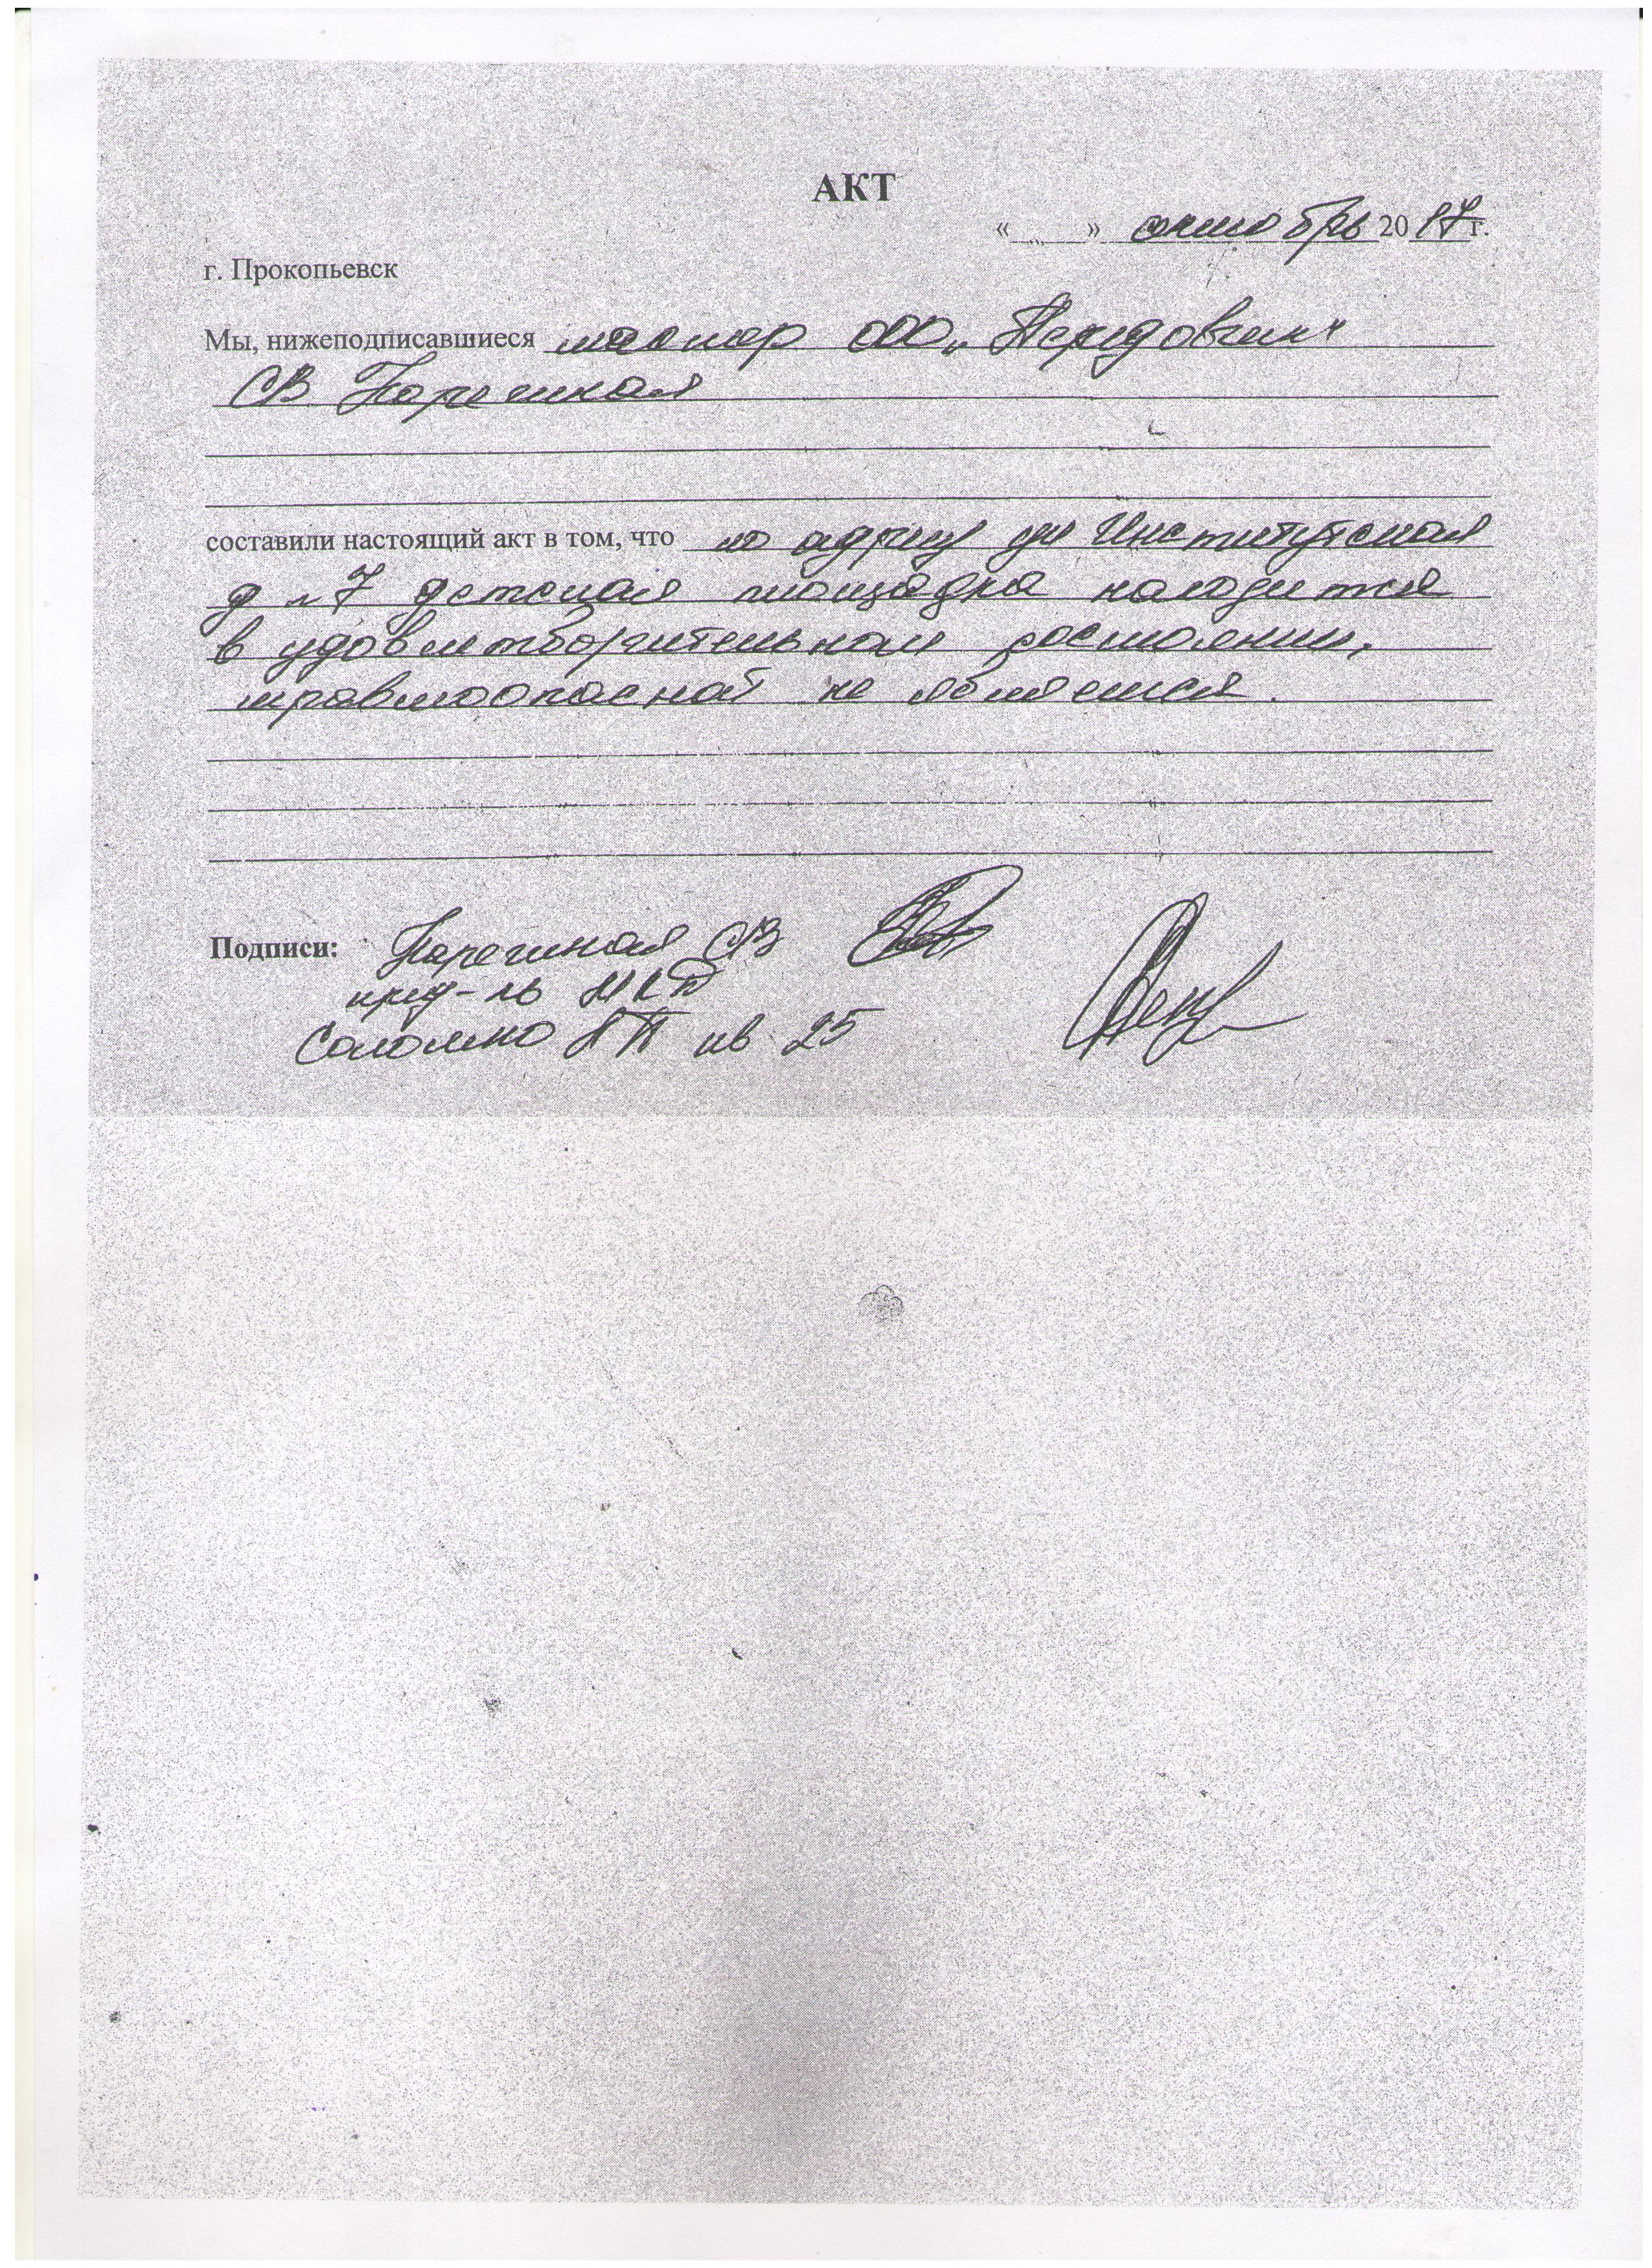 АКТ
« » октябрь 2017г.
г. Прокопьевск
Мы, нижеподписавшиеся мастер ООО „Передовик"
СВ
составили настоящий акт в том, что по адресу ул Институтская
д №7 детская площадка находится
в удовлетворительном состоянии,
травмоопасной не является.
Подписи: СВ
пред-ль МКД
кв 25